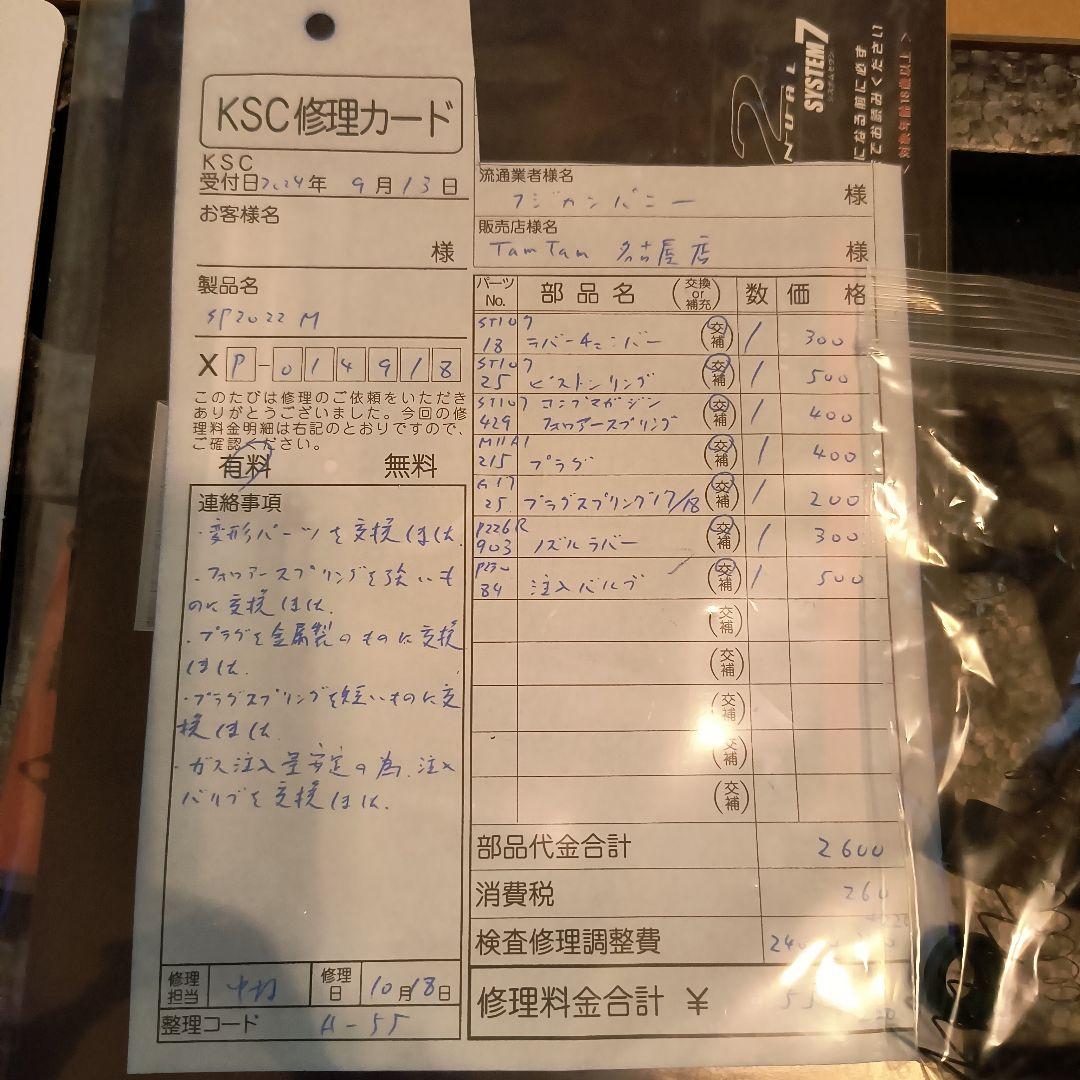 KSC修理カード
KSC
受付日2024年 9月13日
お客様名
様
製品名
SP2022 M
X P-014918
このたびは修理のご依頼をいただき
ありがとうございました。今回の修
理料金明細は右記のとおりですので、
ご確認ください。
有料 無料
連絡事項
・変形パーツを交換しました
・フォロアースプリングを強いも
のに交換しました
・プラグを金属製のものに交換
しました
・プラグスプリングを短いものに交
換しました
・ガス注入量安定の為、注入
バルブを交換しました
修理担当 修理日 10月18日
整理コード H-55
流通業者様名
フジカンパニー 様
販売店様名
TamTam 名古屋店 様
パーツNo. 部品名 (交換or補充) 数 価格
ST107
18 ラバーチェンバー (交補) 1 300
ST107
25 ピストンリング (交補) 1 500
ST107 コンプマガジン
429 フォロアースプリング (交補) 1 400
M11A1
215 プラグ (交補) 1 400
G17
25 プラグスプリング17/18 (交補) 1 200
P226R
903 ノズルラバー (交補) 1 300
P230
84 注入バルブ (交補) 1 500
(交補)
(交補)
(交補)
(交補)
(交補)
部品代金合計 2600
消費税 260
検査修理調整費
修理料金合計 ¥
SYSTEM7
システムセブン
になる前に必ず
てお読みください
対象年齢18歳以上